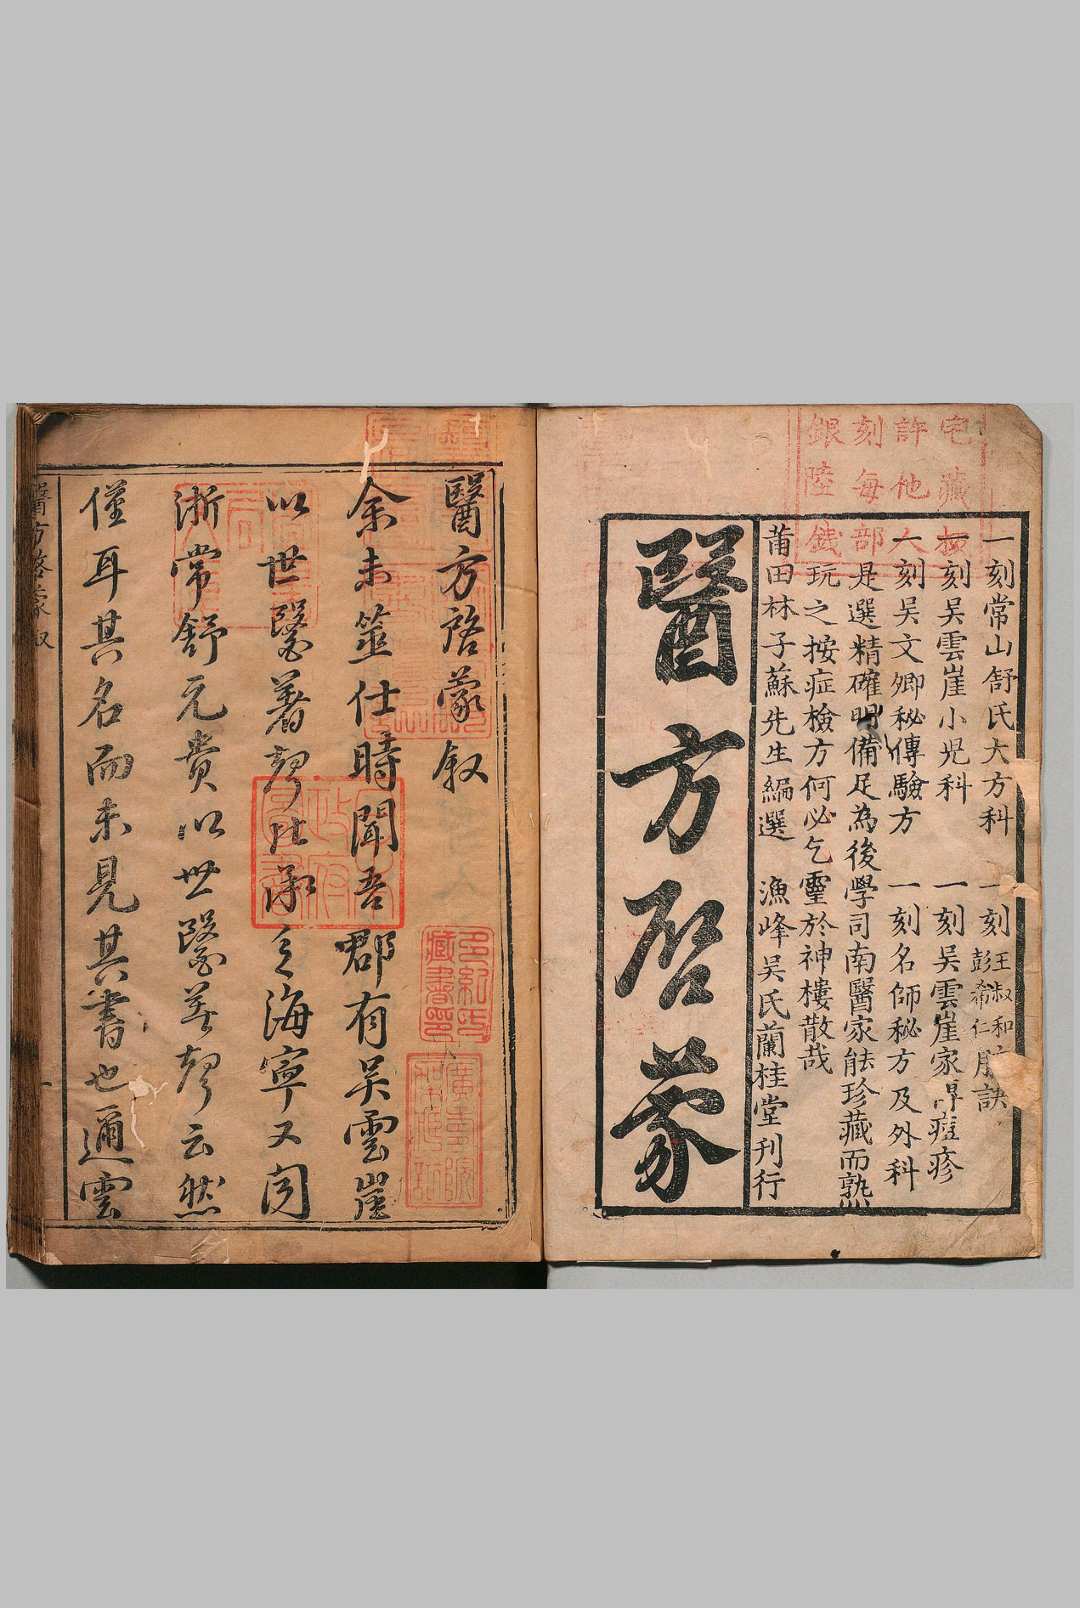 宅藏板
許他人
刻每部
銀陸錢
一刻常山舒氏大方科　一刻王叔和彭希仁脉訣
一刻吳雲崖小兒科　一刻吳雲崖家痘疹
一刻吳文卿秘傳驗方　一刻名師秘方及外科
是選精確明備足為後學司南醫家能珍藏而熟
玩之按症檢方何必乞靈於神樓散哉
莆田林子蘇先生編選　漁峰吳氏蘭桂堂刊行
醫方启蒙
醫方啓蒙叙
余未筮仕時聞吾郡有吳雲崖
以世醫著聲北承之海寧又聞
浙常舒元貴以世醫著聲云然
僅耳其名而未見其書也通雲
醫方啓蒙叙
多紀氏藏書印
廣壽院架藏記